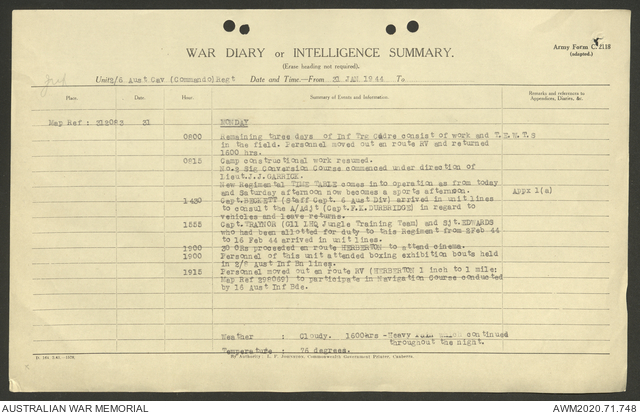 Army Form C.2118
(adapted.)
WAR DIARY or INTELLIGENCE SUMMARY.
(Erase heading not required).
Unit 2/6 Aust Cav (Commando) Regt Date and Time—From 31 JAN 1944 To
Place. Date. Hour. Summary of Events and Information. Remarks and references to Appendices, Diaries, &c.
Map Ref : 312083 31 MONDAY
0800 Remaining three days of Inf Trg Cadre consist of work and T.E.W.T.S
in the field. Personnel moved out en route RV and returned
1600 hrs.
0815 Camp constructional work resumed.
No.2 Sig Conversion Course commenced under direction of
Lieut.J.J.GARRICK.
New Regimental TIME TABLE comes into operation as from today
and Saturday afternoon now becomes a sports afternoon. Appx 1(a)
1430 Capt.BECKETT (Staff Capt. 6 Aust Div) arrived in unit lines
to consult the A/Adjt (Capt.F.K.DURBRIDGE) in regard to
vehicles and leave returns.
1555 Capt.TRAYNOR (G11 LHQ Jungle Training Team) and Sjt.EDWARDS
who had been allotted for duty to this Regiment from 2Feb 44
to 16 Feb 44 arrived in unit lines.
1900 30 ORs proceeded en route HERBERTON to attend cinema.
1900 Personnel of this unit attended boxing exhibition bouts held
in 2/8 Aust Inf Bn lines.
1915 Personnel moved out en route RV (HERBERTON 1 inch to 1 mile:
Map Ref 298069) to participate in Navigation Course conducted
by 16 Aust Inf Bde.
Weather : Cloudy. 1600hrs -Heavy rain which continued
throughout the night.
Temperature : 76 degrees.
By Authority : L. F. Johnston, Commonwealth Government Printer, Canberra.
AUSTRALIAN WAR MEMORIAL
AWM2020.71.748